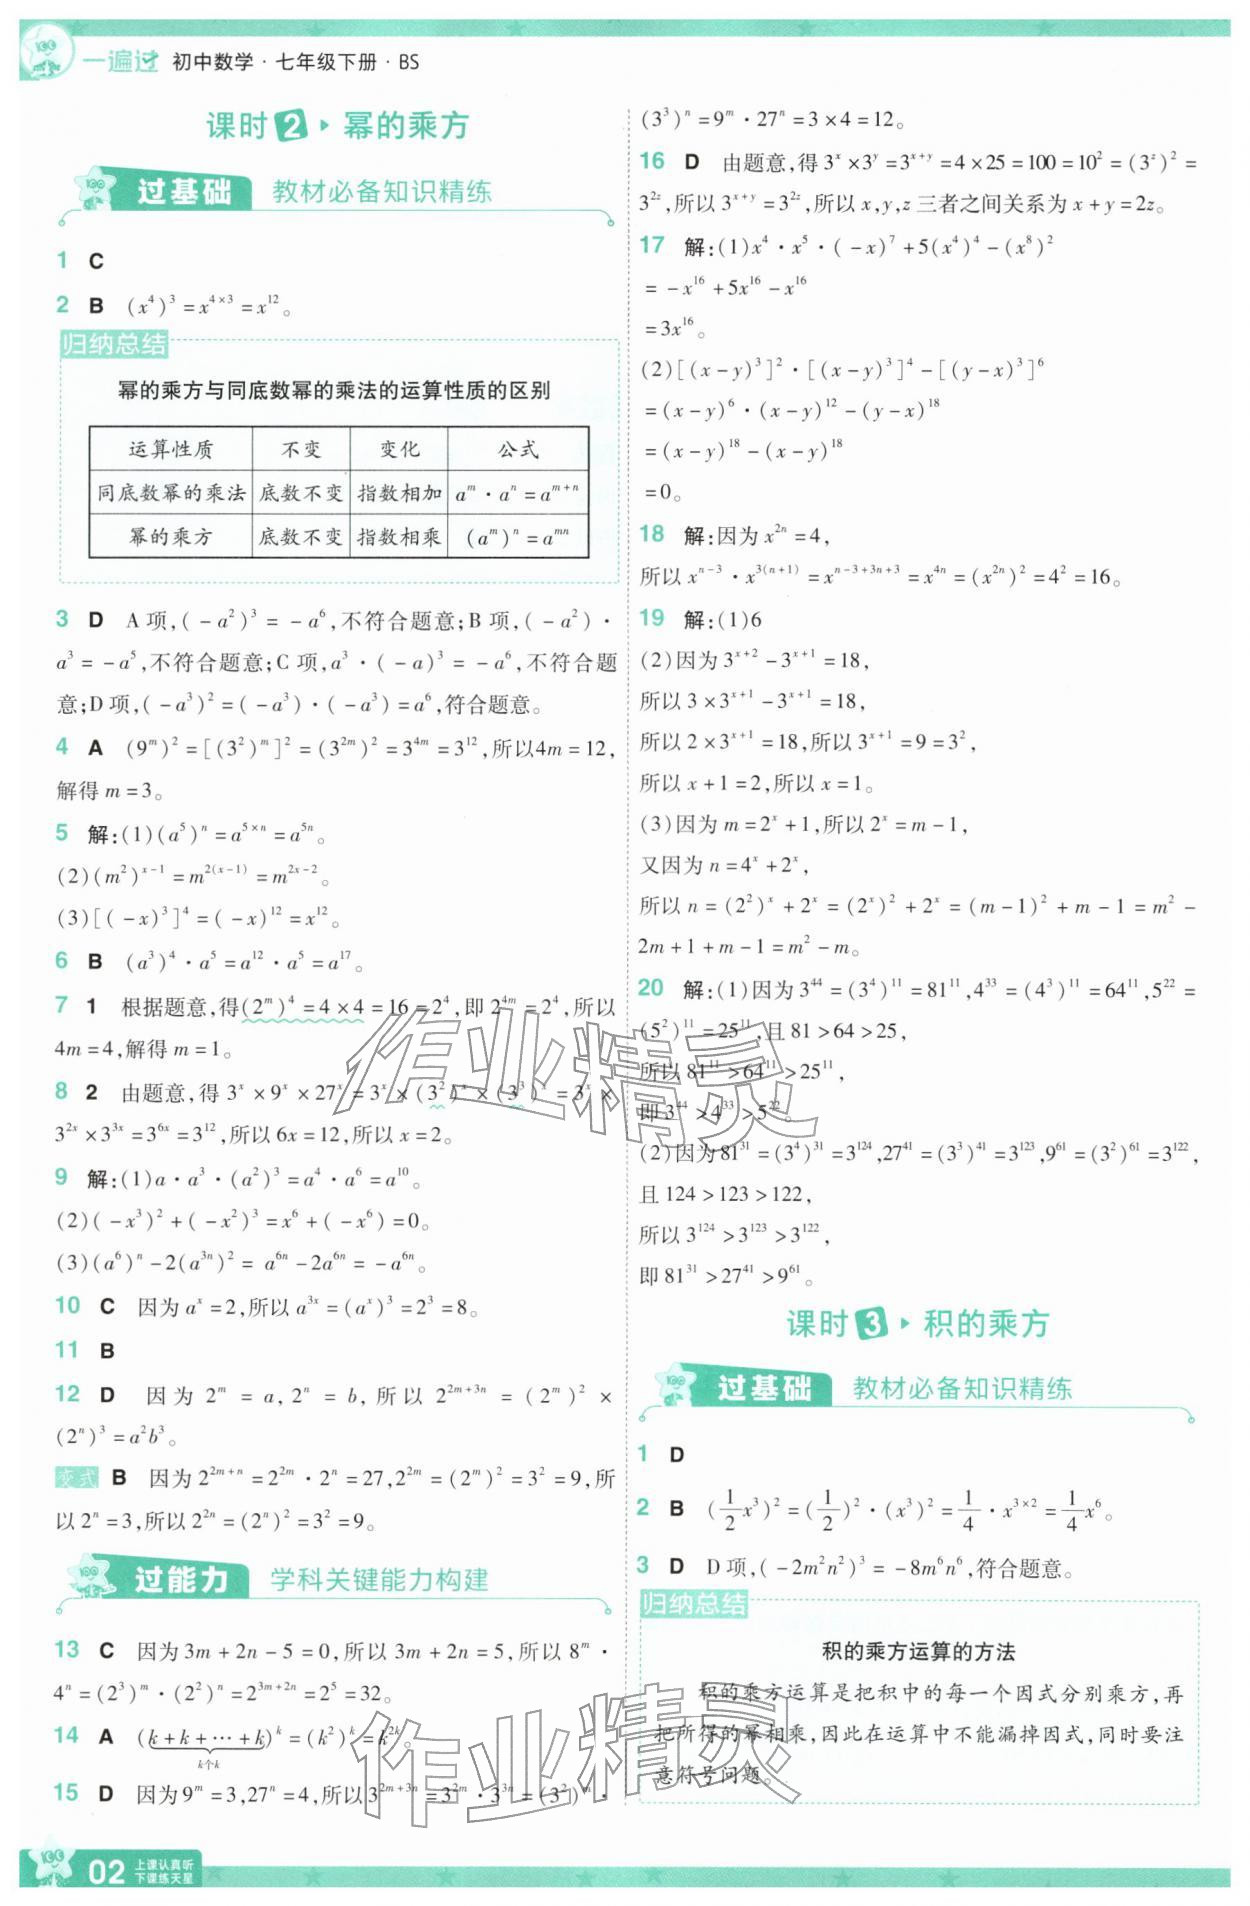 一遍过 初中数学·七年级下册·BS
课时2 幂的乘方
过基础 教材必备知识精练
1 C
2 B (x⁴)³=x^{4×3}=x¹²。
归纳总结
幂的乘方与同底数幂的乘法的运算性质的区别
运算性质 不变 变化 公式
同底数幂的乘法 底数不变 指数相加 a^m·a^n=a^{m+n}
幂的乘方 底数不变 指数相乘 (a^m)^n=a^{mn}
3 D A项,(-a²)³=-a⁶,不符合题意;B项,(-a²)·
a³=-a⁵,不符合题意;C项,a³·(-a)³=-a⁶,不符合题
意;D项,(-a³)²=(-a³)·(-a³)=a⁶,符合题意。
4 A (9^m)²=[(3²)^m]²=(3^{2m})²=3^{4m}=3¹²,所以4m=12,
解得m=3。
5 解:(1)(a⁵)^n=a^{5×n}=a^{5n}。
(2)(m²)^{x-1}=m^{2(x-1)}=m^{2x-2}。
(3)[(-x)³]⁴=(-x)¹²=x¹²。
6 B (a³)⁴·a⁵=a¹²·a⁵=a¹⁷。
7 1 根据题意,得(2^m)⁴=4×4=16=2⁴,即2^{4m}=2⁴,所以
4m=4,解得m=1。
8 2 由题意,得3^x×9^x×27^x=3^x×(3²)^x×(3³)^x=3^x×
3^{2x}×3^{3x}=3^{6x}=3¹²,所以6x=12,所以x=2。
9 解:(1)a·a³·(a²)³=a⁴·a⁶=a¹⁰。
(2)(-x³)²+(-x²)³=x⁶+(-x⁶)=0。
(3)(a⁶)^n-2(a^{3n})²=a^{6n}-2a^{6n}=-a^{6n}。
10 C 因为a^x=2,所以a^{3x}=(a^x)³=2³=8。
11 B
12 D 因为2^m=a,2^n=b,所以2^{2m+3n}=(2^m)²×
(2^n)³=a²b³。
变式 B 因为2^{2m+n}=2^{2m}·2^n=27,2^{2m}=(2^m)²=3²=9,所
以2^n=3,所以2^{2n}=(2^n)²=3²=9。
过能力 学科关键能力构建
13 C 因为3m+2n-5=0,所以3m+2n=5,所以8^m·
4^n=(2³)^m·(2²)^n=2^{3m+2n}=2⁵=32。
14 A (k+k+…+k)^k=(k²)^k=k^{2k}。
k个k
15 D 因为9^m=3,27^n=4,所以3^{2m+3n}=3^{2m}·3^{3n}=(3²)^m·
(3³)^n=9^m·27^n=3×4=12。
16 D 由题意,得3^x×3^y=3^{x+y}=4×25=100=10²=(3^z)²=
3^{2z},所以3^{x+y}=3^{2z},所以x,y,z三者之间关系为x+y=2z。
17 解:(1)x⁴·x⁵·(-x)⁷+5(x⁴)⁴-(x⁸)²
=-x¹⁶+5x¹⁶-x¹⁶
=3x¹⁶。
(2)[(x-y)³]²·[(x-y)³]⁴-[(y-x)³]⁶
=(x-y)⁶·(x-y)¹²-(y-x)¹⁸
=(x-y)¹⁸-(x-y)¹⁸
=0。
18 解:因为x^{2n}=4,
所以x^{n-3}·x^{3(n+1)}=x^{n-3+3n+3}=x^{4n}=(x^{2n})²=4²=16。
19 解:(1)6
(2)因为3^{x+2}-3^{x+1}=18,
所以3×3^{x+1}-3^{x+1}=18,
所以2×3^{x+1}=18,所以3^{x+1}=9=3²,
所以x+1=2,所以x=1。
(3)因为m=2^x+1,所以2^x=m-1,
又因为n=4^x+2^x,
所以n=(2²)^x+2^x=(2^x)²+2^x=(m-1)²+m-1=m²-
2m+1+m-1=m²-m。
20 解:(1)因为3⁴⁴=(3⁴)¹¹=81¹¹,4³³=(4³)¹¹=64¹¹,5²²=
(5²)¹¹=25¹¹,且81>64>25,
所以81¹¹>64¹¹>25¹¹,
即3⁴⁴>4³³>5²²。
(2)因为81³¹=(3⁴)³¹=3¹²⁴,27⁴¹=(3³)⁴¹=3¹²³,9⁶¹=(3²)⁶¹=3¹²²,
且124>123>122,
所以3¹²⁴>3¹²³>3¹²²,
即81³¹>27⁴¹>9⁶¹。
课时3 积的乘方
过基础 教材必备知识精练
1 D
2 B (1/2 x³)²=(1/2)²·(x³)²=1/4·x^{3×2}=1/4 x⁶。
3 D D项,(-2m²n²)³=-8m⁶n⁶,符合题意。
归纳总结
积的乘方运算的方法
积的乘方运算是把积中的每一个因式分别乘方,再
把所得的幂相乘,因此在运算中不能漏掉因式,同时要注
意符号问题。
作业精灵
作业精灵
02 上课认真听
下课练天星